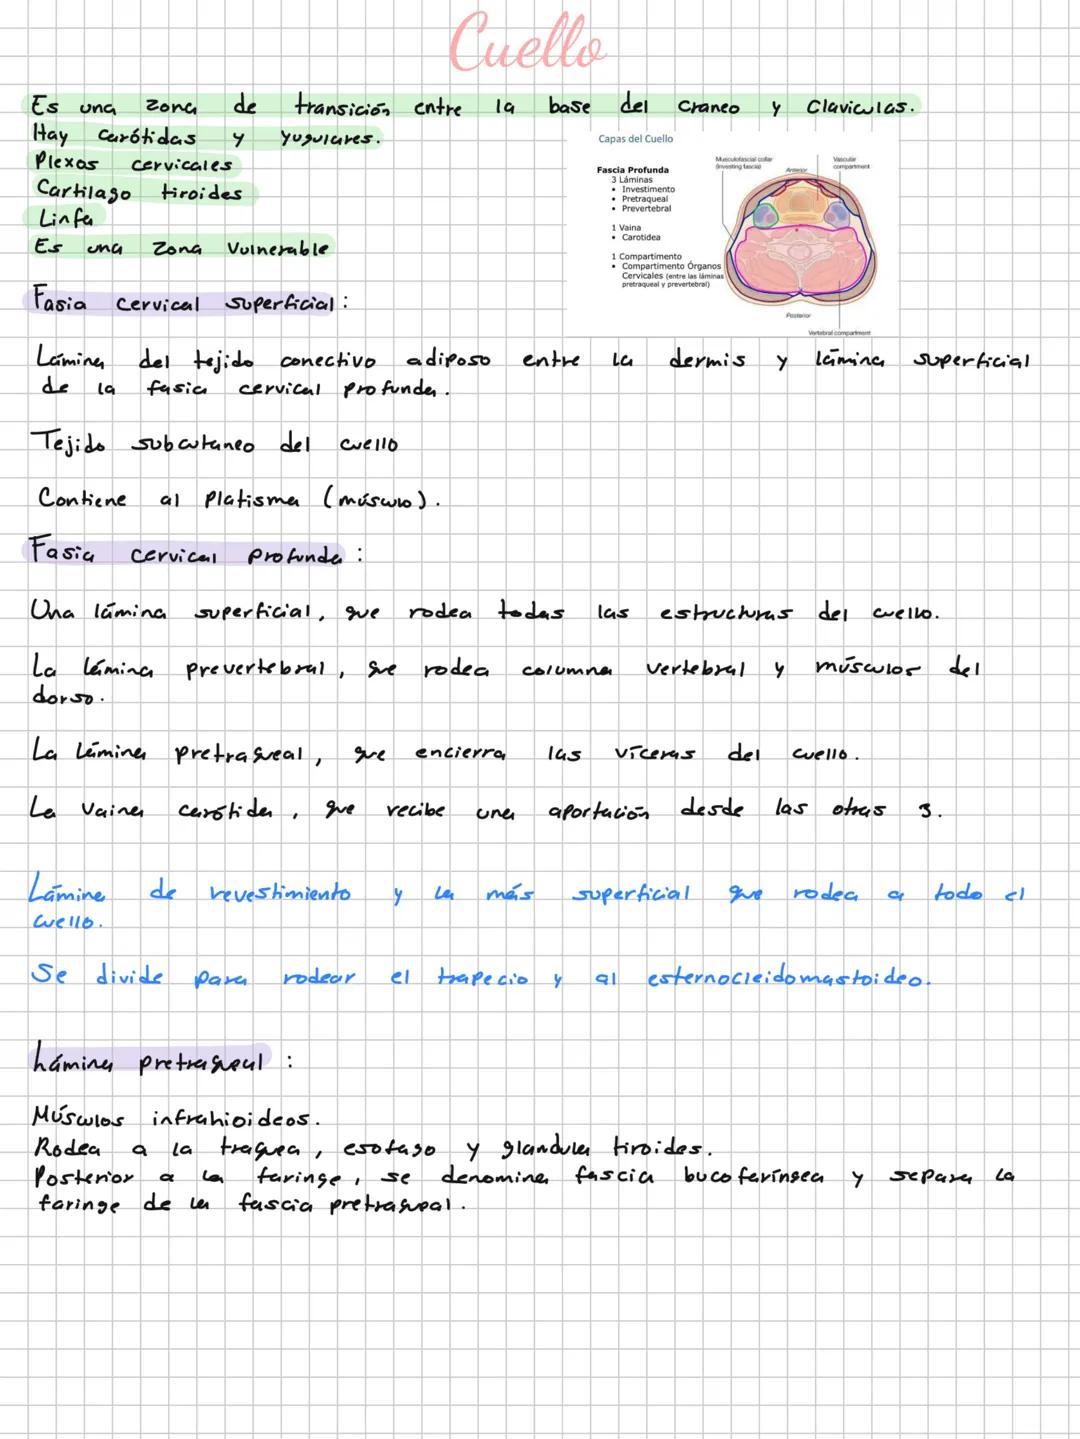 Cuello
Es una zona de transición entre la base del Craneo y Claviculas.
Hay Carótidas y Yugulares.
Plexos cervicales
Cartilago tiroides
Linfa
Es una zona Vulnerable
Capas del Cuello
Fascia Profunda
3 Láminas
• Investimento
• Pretraqueal
• Prevertebral
1 Vaina
• Carotidea
1 Compartimento
• Compartimento Órganos
Cervicales (entre las láminas
pretraqueal y prevertebral)
Musculofascial collar
(investing fascia)
Anterior
Vascular
compartment
Posterior
Vertebral compartment
Fasia cervical superficial:
Lámina del tejido conectivo adiposo entre la dermis y lámina superficial
de la fasia cervical profunda.
Tejido subcutaneo del cuello
Contiene al Platisma (músculo).
Fasia cervical Profunda:
Una lámina superficial, que rodea todas las estructuras del cuello.
La lámina prevertebral, que rodea columna vertebral y músculos del
dorso.
La lámina pretraqueal, que encierra las víceras del cuello.
La vaina carótida, que recibe una aportación desde las otras 3.
Lámina de revestimiento y la más superficial que rodea a todo el
cuello.
Se divide para rodear el trapecio y al esternocleidomastoideo.
Lámina pretraqueal:
Músculos infrahioideos.
Rodea a la traquea, esofago y glandula tiroides.
Posterior a la faringe, se denomina fascia bucofaríngea y separa la
faringe de la fascia pretraqueal.